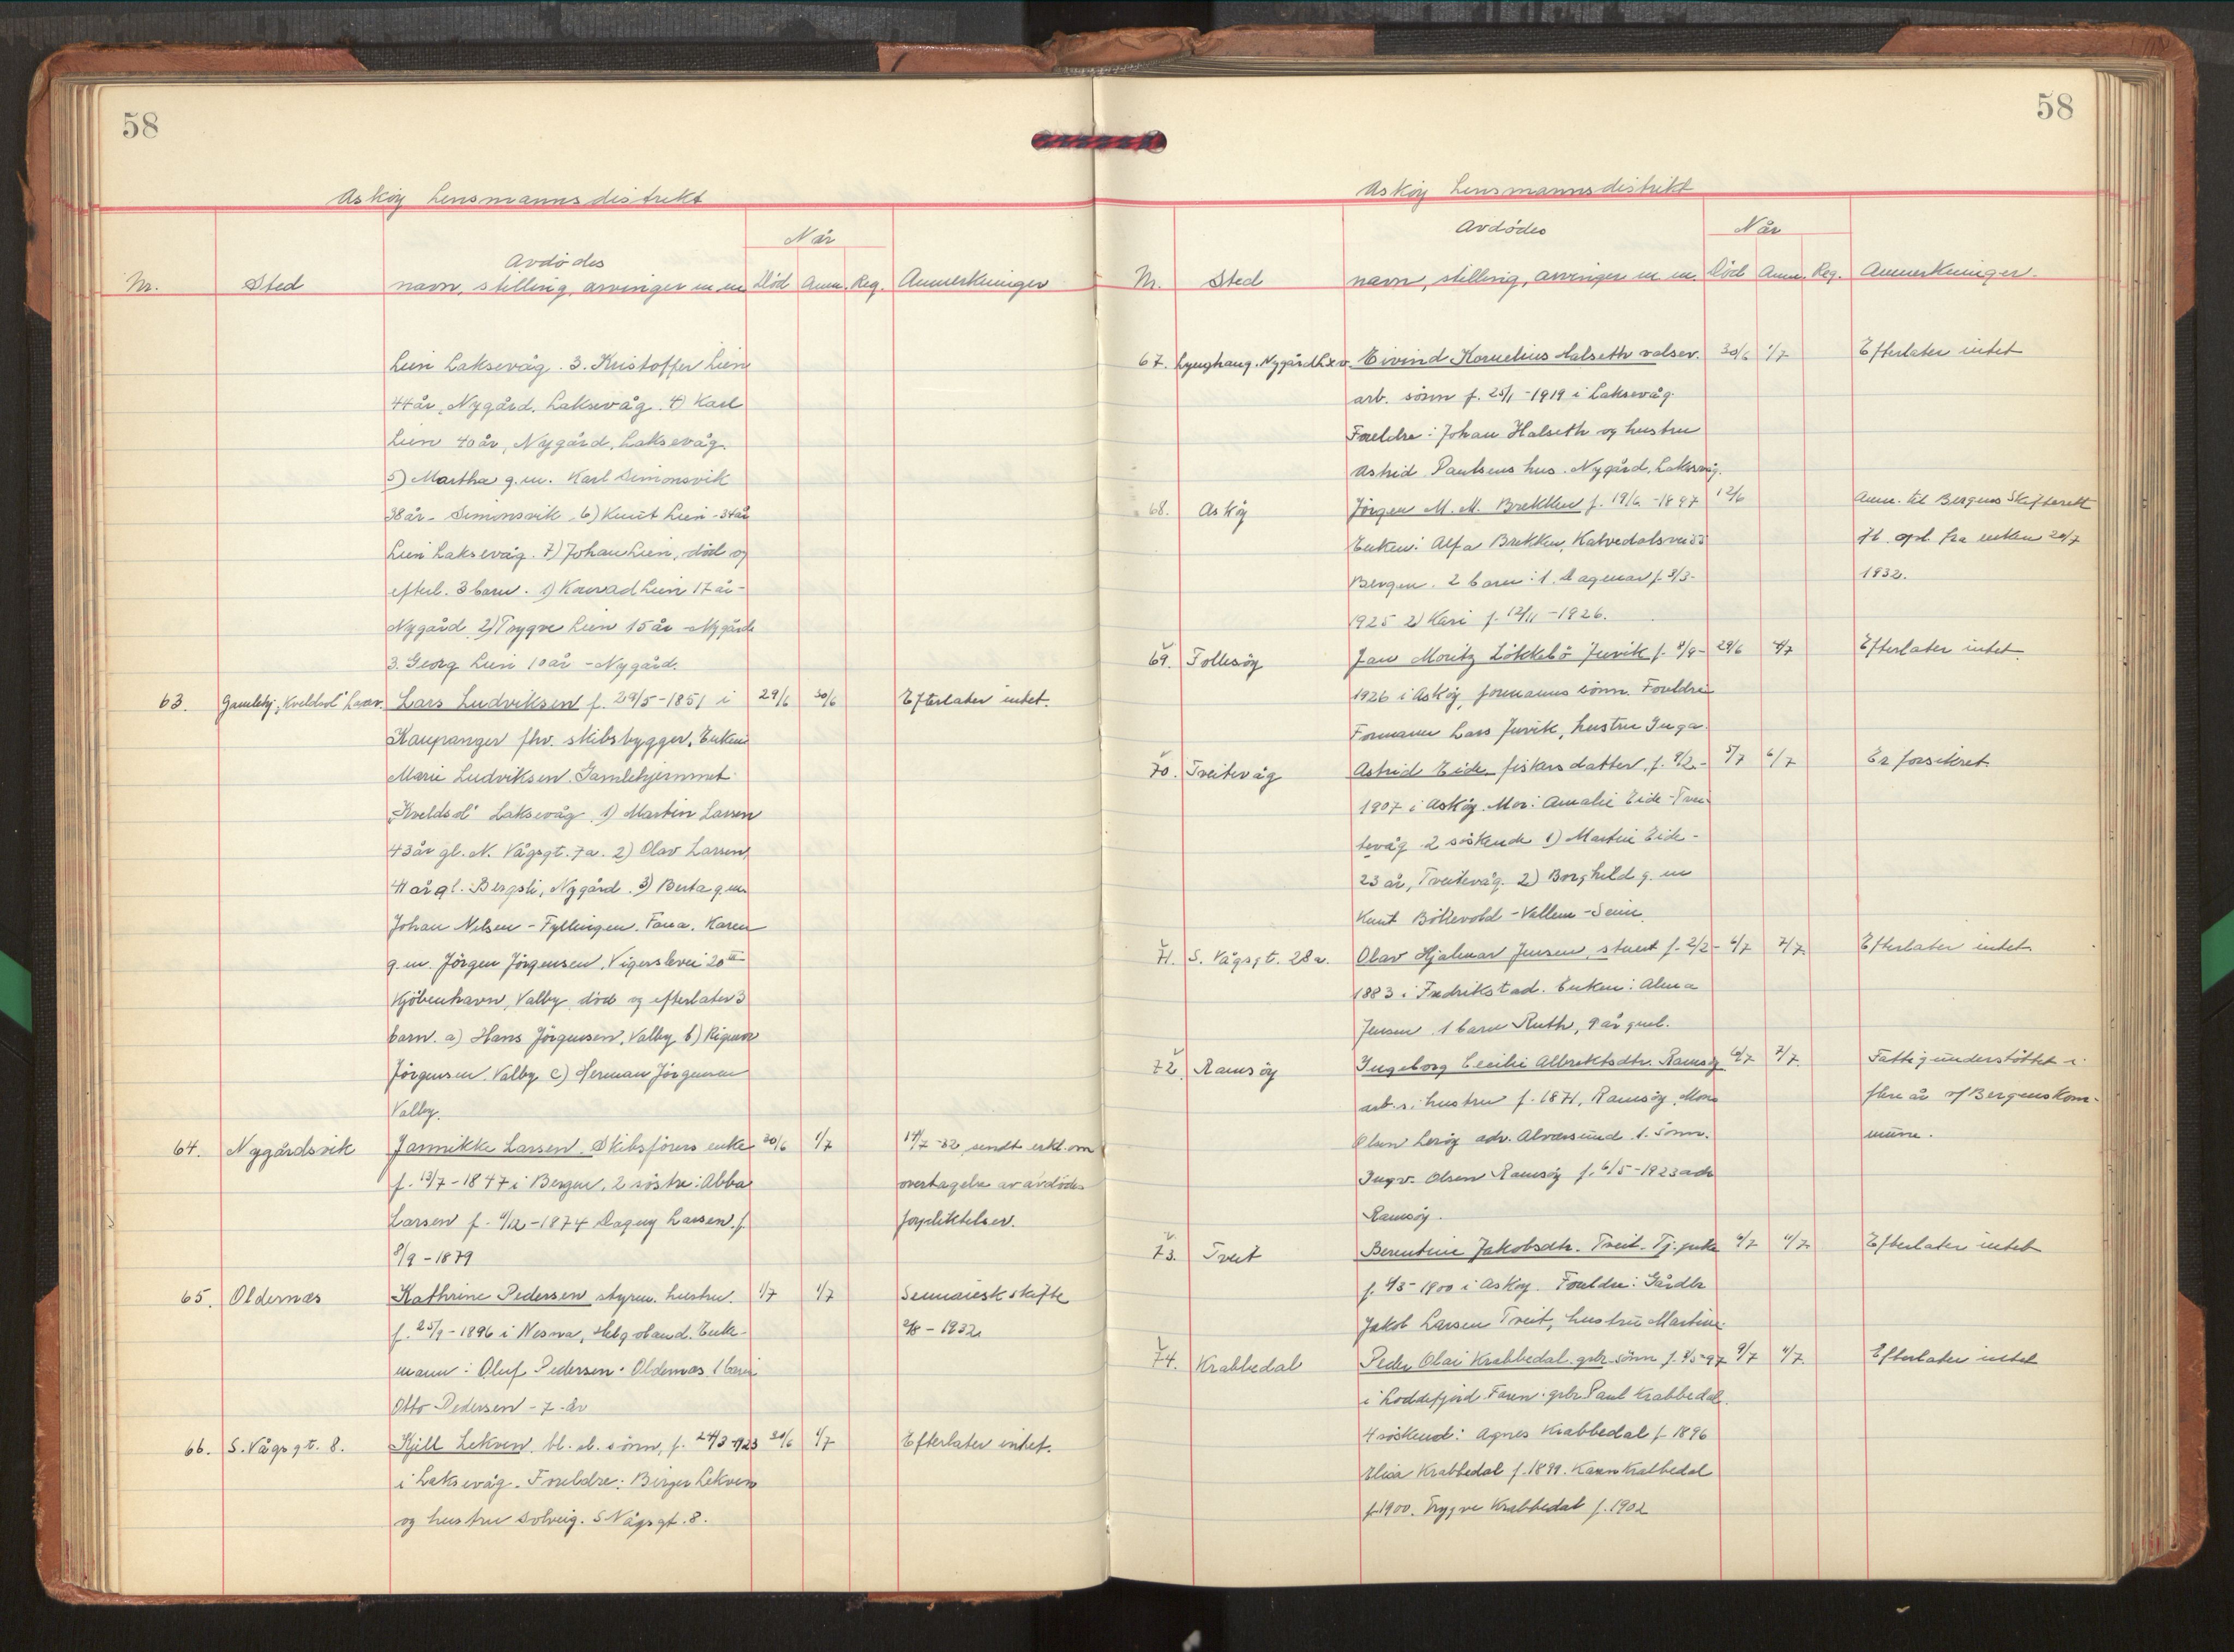 58
Askøy Lensmannsdistrikt
Når
Avdødes
Nr. Sted navn, stilling, arvinger m m Död Anm. Reg. Anmerkninger
Lien Laksevåg. 3. Kristoffer Lien
44 år, Nygård, Laksevåg. 4) Karl
Lien 40 år, Nygård, Laksevåg.
5) Martha g.m. Karl Simonsvik
38 år - Simonsvik 6) Knut Lien - 34 år
Lien Laksevåg. 7) Johan Lien, död og
efterl. 3 barn. 1) Konrad Lien 17 år -
Nygård 2) Trygve Lien 15 år - Nygård
3. Georg Lien 10 år - Nygård.
63. Gamlehj. „Kveldsol" Laksev. Lars Ludviksen f. 29/5-1851 i 29/6 30/6 Efterlater intet.
Kaupanger fhv. skibsbygger. Enken:
Marie Ludviksen. Gamlehjemmet
„Kveldsol" Laksevåg. 1) Martin Larsen
43 år gl. N. Vågsgt. 7a. 2) Olav Larsen,
41 år gl. Bergsli, Nygård. 3) Berta g.m.
Johan Nilsen - Fyllingen. Fana. Karen
g.m. Jörgen Jörgensen, Vigerslevei 20 III
Kjöbenhavn, Valby död og efterlater 3
barn. a) Hans Jörgensen, Valby b) Rigmor
Jörgensen. Valby c) Herman Jörgensen
Valby.
64. Nygårdsvik Jannikke Larsen. Skibsförers enke 30/6 1/7 14/7-32 sendt erkl. om
f. 13/7-1847 i Bergen. 2 söstre: Abba overtagelse av avdödes
Larsen f. 4/12-1874 Dagny Larsen f. forpliktelser.
8/9-1879
65. Oldernæs Kathrine Pedersen styrm. hustru. 1/7 1/7 Summarisk skifte
f. 25/9-1896 i Nesna, Helgoland. Enke- 2/8-1932
mann: Oluf Pedersen. Oldernæs 1 barn
Otto Pedersen - 7 år
66. S. Vågsgt. 8. Kjell Lekven bl. sl. sönn, f. 24/3-1923 30/6 1/7 Efterlater intet.
i Laksevåg. Foreldre: Birger Lekven
og hustru Solveig. S Vågsgt. 8.
58
Askøy Lensmannsdistrikt
Avdödes Når
Nr. Sted navn, stilling, arvinger m m. Död Anm. Reg. Anmerkninger.
67. Lynghaug. Nygård Lxv. Eivind Kornelius Halseth valsev. 30/6 1/7 Efterlater intet
arb. sönn f. 25/1-1919 i Laksevåg.
Foreldre: Johan Halseth og hustru
Astrid Paulsens hus. Nygård. Laksevåg.
68. Askøy Jörgen M. M. Brekken f. 19/6-1897 12/6 Anm. til Bergens Skifterett
Enken: Alfa Brekken, Kalvedalsvei 55 fl. opl. fra enken 20/7
Bergen. 2 barn: 1. Dagmar f. 3/3- 1932.
1925 2) Kari f. 12/11-1926.
69. Follesøy Jan Moritz Lökkebö Juvik f. 8/9- 29/6 4/7 Efterlater intet.
1926 i Askøy, formanns sönn. Foreldre
Formann Lars Juvik, hustru Inga.
70. Træitevåg Astrid Eide fiskers datter. f. 9/2- 5/7 6/7 Er forsikret.
1907 i Askøy. Mor: Amalie Eide - Trei-
tevåg 2 söskende 1) Martin Eide -
23 år, Treitevåg. 2) Borghild g. m
Knut Bökevold - Vallem - Seim.
71. S. Vågsgt. 28a. Olav Hjalmar Jensen, stuert f. 2/2- 6/7 7/7. Efterlater intet.
1883 i Fredrikstad. Enken: Alma
Jensen 1 barn Ruth, 9 år gml.
72. Ramsøy Ingeborg Cecilie Albrektsdtr. Ramsøy 6/7 7/7. Fattigunderstöttet i
arb. s. hustru f. 1871, Ramsøy, Mons flere år af Bergens kom-
Olsen Lerøy adr. Alversund 1. Sönn: mune.
Ingv. Olsen Ramsøy f. 6/5-1923 adr
Ramsøy.
73. Tveit Berentine Jakobsdtr. Tveit. Tj. pike 9/7 11/7. Efterlater intet
f. 4/3-1900 i Askøy. Foreldre: Gårdbr
Jakob Larsen Tveit, hustru Martine.
74. Krabbedal Peder Olai Krabbedal. gbr. sönn f. 4/5-97 9/7 11/7. Efterlater intet
i Loddefjord. Faren: gbr. Paul Krabbedal.
4 söskend: Agnes Krabbedal f. 1896
Elisa Krabbedal f. 1899. Karen Krabbedal
f. 1900. Trygve Krabbedal f. 1902